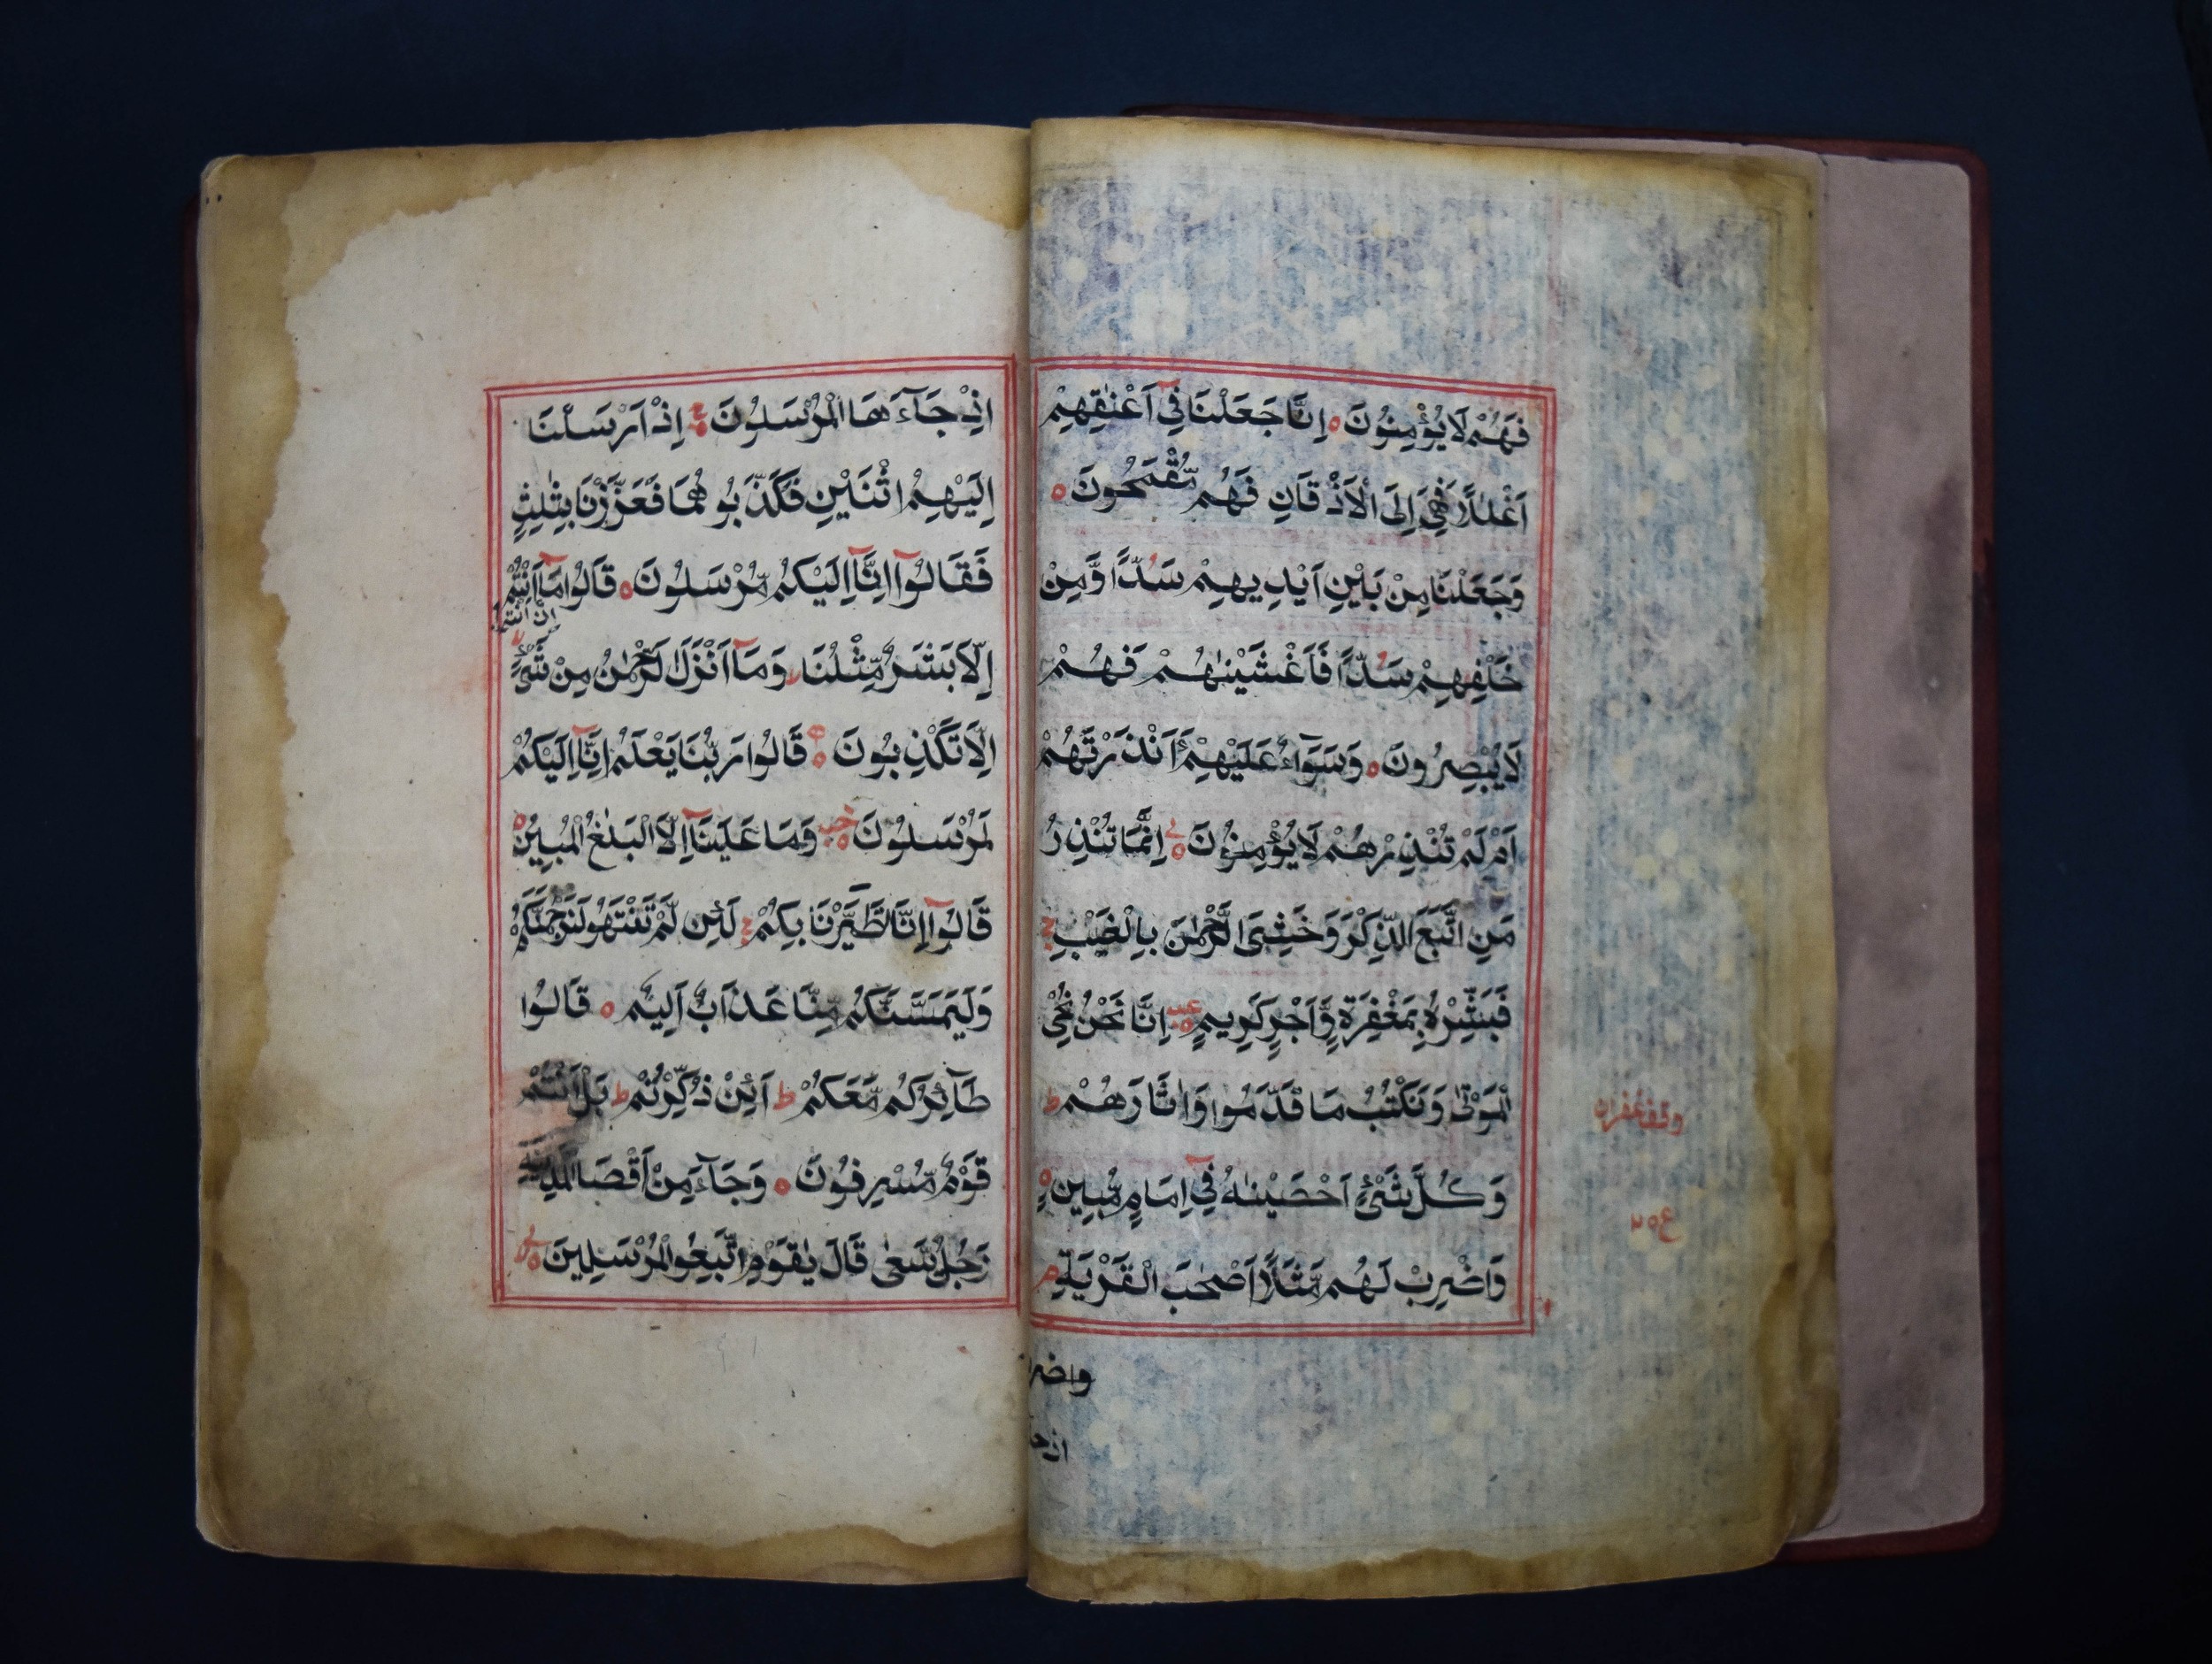 فَهُمْ لَا يُؤْمِنُونَ ○ اِنَّا جَعَلْنَا فِيٓ اَعْنٰقِهِمْ
اَغْلٰلًا فَهِيَ اِلَى الْاَذْقَانِ فَهُمْ مُّقْمَحُونَ ○
وَجَعَلْنَا مِنْ بَيْنِ اَيْدِيهِمْ سَدًّا وَّمِنْ
خَلْفِهِمْ سَدًّا فَاَغْشَيْنٰهُمْ فَهُمْ
لَا يُبْصِرُونَ ○ وَسَوَآءٌ عَلَيْهِمْ ءَاَنْذَرْتَهُمْ
اَمْ لَمْ تُنْذِرْهُمْ لَا يُؤْمِنُونَ ○ اِنَّمَا تُنْذِرُ
مَنِ اتَّبَعَ الذِّكْرَ وَخَشِيَ الرَّحْمٰنَ بِالْغَيْبِ ج
فَبَشِّرْهُ بِمَغْفِرَةٍ وَّاَجْرٍ كَرِيمٍ ○ اِنَّا نَحْنُ نُحْيِ
الْمَوْتٰى وَنَكْتُبُ مَا قَدَّمُوا وَاٰثَارَهُمْ ط
وَكُلَّ شَيْءٍ اَحْصَيْنٰهُ فِيٓ اِمَامٍ مُّبِينٍ ○
وَاضْرِبْ لَهُمْ مَّثَلًا اَصْحٰبَ الْقَرْيَةِ م
وقف غفران
واضر
اذ جا
اِذْ جَآءَهَا الْمُرْسَلُونَ ○ ج اِذْ اَرْسَلْنَا
اِلَيْهِمُ اثْنَيْنِ فَكَذَّبُوهُمَا فَعَزَّزْنَا بِثٰلِثٍ
فَقَالُوٓا اِنَّآ اِلَيْكُمْ مُّرْسَلُونَ ○ قَالُوا مَآ اَنْتُمْ
اِنْ اَنْتُمْ
اِلَّا بَشَرٌ مِّثْلُنَا وَمَآ اَنْزَلَ الرَّحْمٰنُ مِنْ شَيْءٍ
اِلَّا تَكْذِبُونَ ○ قَالُوا رَبُّنَا يَعْلَمُ اِنَّآ اِلَيْكُمْ
لَمُرْسَلُونَ ○ وَمَا عَلَيْنَآ اِلَّا الْبَلٰغُ الْمُبِينُ ○
قَالُوٓا اِنَّا تَطَيَّرْنَا بِكُمْ ج لَئِنْ لَّمْ تَنْتَهُوا لَنَرْجُمَنَّكُمْ
وَلَيَمَسَّنَّكُمْ مِّنَّا عَذَابٌ اَلِيمٌ ○ قَالُوا
طَآئِرُكُمْ مَّعَكُمْ ط اَئِنْ ذُكِّرْتُمْ ط بَلْ اَنْتُمْ
قَوْمٌ مُّسْرِفُونَ ○ وَجَآءَ مِنْ اَقْصَا الْمَدِيْنَةِ
رَجُلٌ يَّسْعٰى قَالَ يٰقَوْمِ اتَّبِعُوا الْمُرْسَلِينَ ○ لا